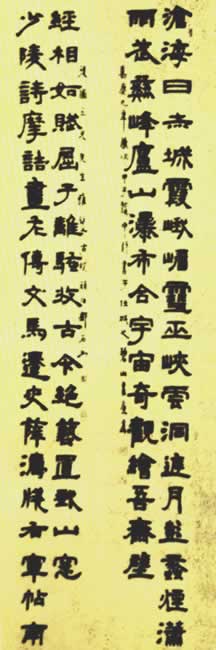 滄海日赤城霞峨嵋雪巫峽雲洞庭月彭蠡煙瀟
雨武彝峰廬山瀑布合宇宙奇觀繪吾齋壁
少陵詩摩詰畫左傳文馬遷史薛濤牋右軍帖南
經相如賦屈子離騷收古今絕藝置我山窓